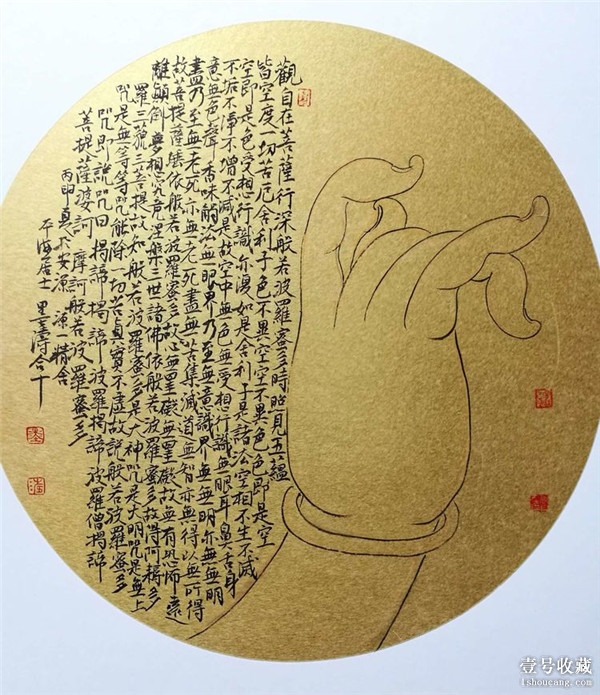 觀自在菩薩行深般若波羅蜜多時照見五蘊
皆空度一切苦厄舍利子色不異空空不異色色即是空
空即是色受想行識亦復如是舍利子是諸法空相不生不滅
不垢不淨不增不減是故空中無色無受想行識無眼耳鼻舌身
意無色聲香味觸法無眼界乃至無意識界無無明亦無無明
盡乃至無老死亦無老死盡無苦集滅道無智亦無得以無所得
故菩提薩埵依般若波羅蜜多故心無罣礙無罣礙故無有恐怖遠
離顛倒夢想究竟涅槃三世諸佛依般若波羅蜜多故得阿耨多
羅三藐三菩提故知般若波羅蜜多是大神咒是大明咒是無上
咒是無等等咒能除一切苦真實不虛故說般若波羅蜜多
咒即說咒曰揭諦揭諦波羅揭諦波羅僧揭諦
菩提薩婆訶 摩訶般若波羅蜜多
丙申夏於安源源一精舍
平海居士墨濤合十
壹号收藏
1shoucang.com